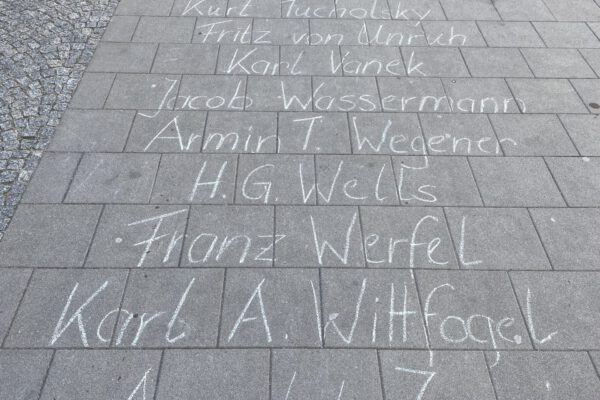 Kurt Tucholsky
Fritz von Unruh
Karl Vanek
Jacob Wassermann
Armin T. Wegener
H. G. Wells
Franz Werfel
Karl A. Wittfogel